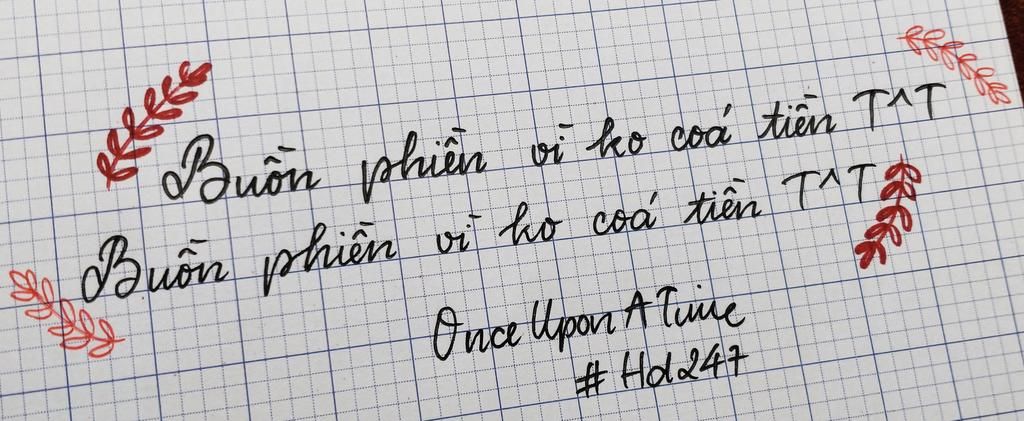 Buồn phiền vì ko coá tiền T^T
Buồn phiền vì ko coá tiền T^T
Once Upon A Time
# Hd247